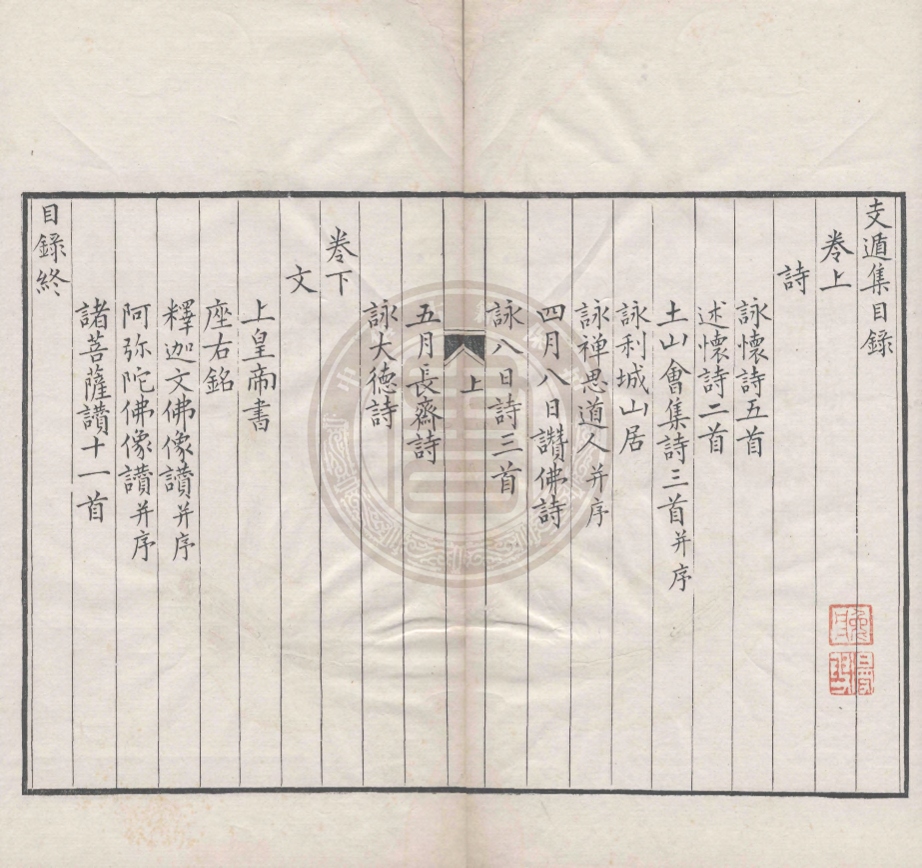 支遁集目録
卷上
詩
詠懷詩五首
述懷詩二首
土山會集詩三首并序
詠利城山居
詠禅思道人并序
四月八日讚佛詩
詠八日詩三首
上
五月長齋詩
詠大德詩
卷下
文
上皇帝書
座右銘
釋迦文佛像讚并序
阿弥陀佛像讚并序
諸菩薩讚十一首
目録終